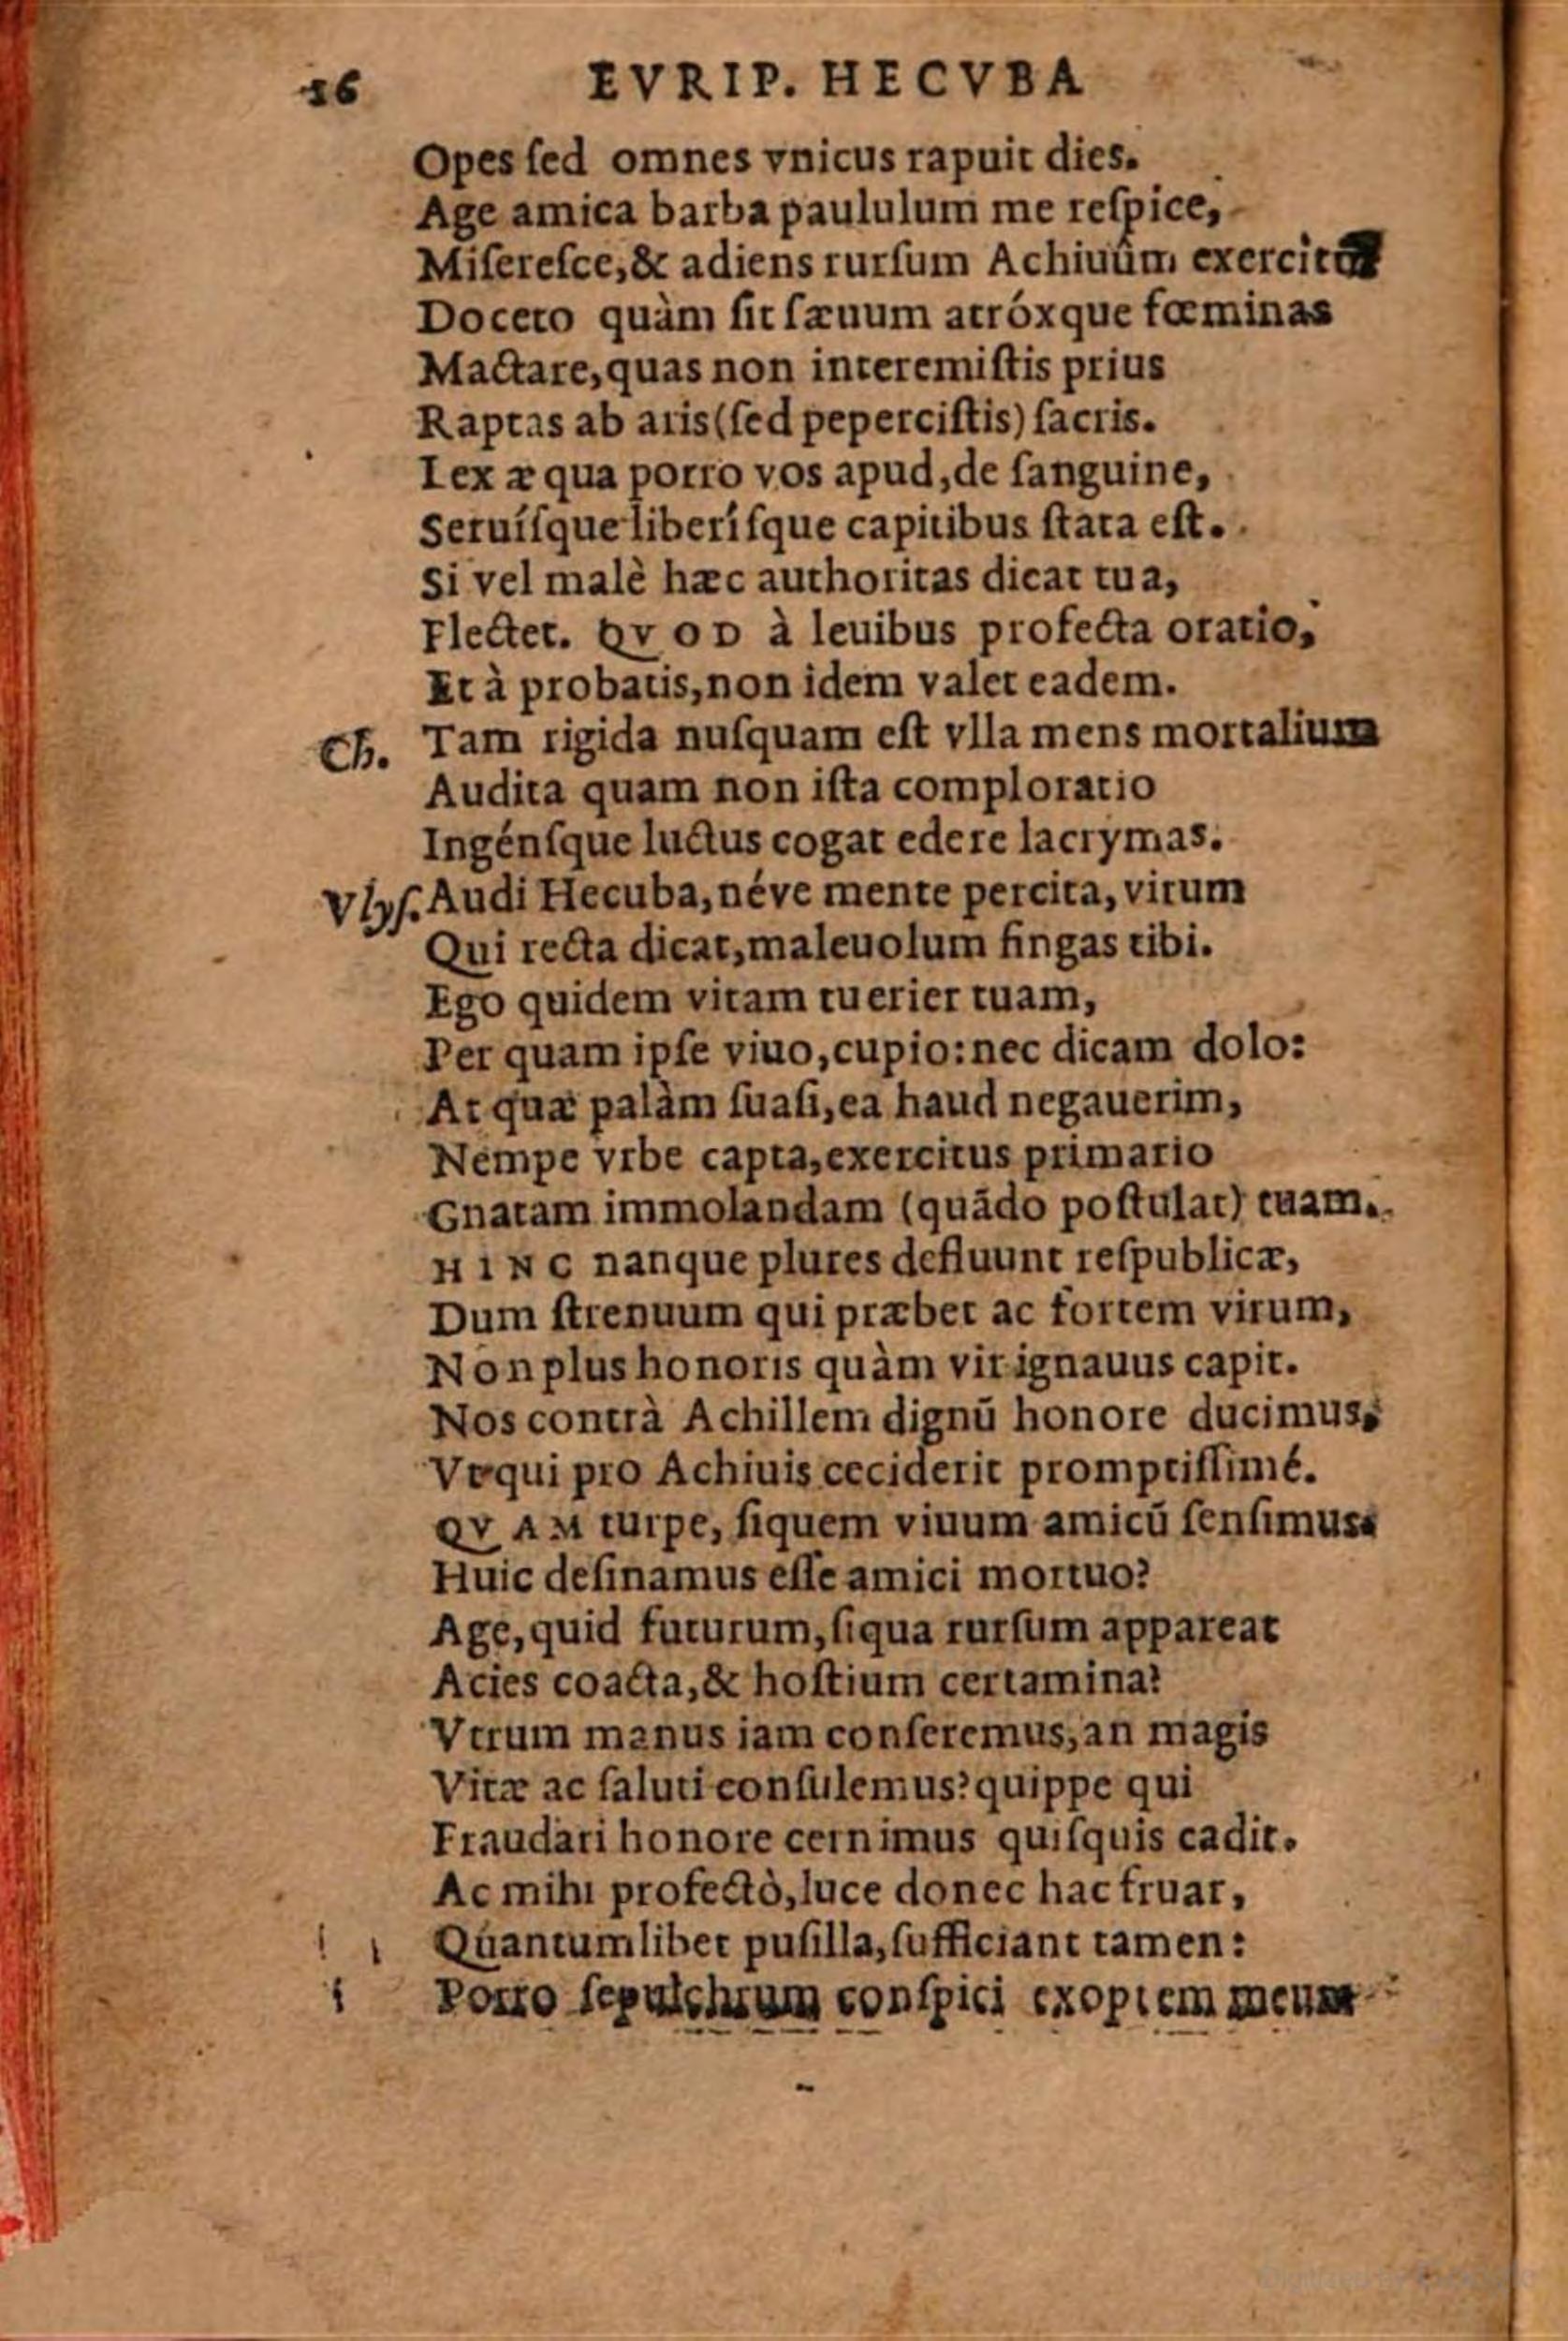 16 EVRIP. HECVBA
Opes ſed omnes vnicus rapuit dies.
Age amica barba paululum me reſpice,
Miſereſce,& adiens rurſum Achiuûm
Doceto quàm ſit ſæuum atróxque fœminas
Mactare,quas non interemiſtis prius
Raptas ab aris(ſed peperciſtis) ſacris.
Lex æqua porro vos apud,de ſanguine,
Seruíſque liberíſque capitibus ſtata eſt.
Si vel malè hæc authoritas dicat tua,
Flectet. QVOD à leuibus profecta oratio,
Et à probatis,non idem valet eadem.
Ch. Tam rigida nuſquam eſt vlla mens mortalium
Audita quam non iſta comploratio
Ingénſque luctus cogat edere lacrymas.
Vlyſ. Audi Hecuba,néve mente percita, virum
Qui recta dicat,maleuolum fingas tibi.
Ego quidem vitam tuerier tuam,
Per quam ipſe viuo,cupio:nec dicam dolo:
At quæ palàm ſuaſi,ea haud negauerim,
Nempe vrbe capta,exercitus primario
Gnatam immolandam (quãdo poſtulat) tuam.
HINC nanque plures defluunt reſpublicæ,
Dum ſtrenuum qui præbet ac fortem virum,
Non plus honoris quàm vir ignauus capit.
Nos contrà Achillem dignũ honore ducimus,
Vt qui pro Achiuis ceciderit promptiſſimé.
QVAM turpe, ſiquem viuum amicũ ſenſimus,
Huic deſinamus eſſe amici mortuo?
Age,quid futurum,ſiqua rurſum appareat
Acies coacta,& hoſtium certamina?
Vtrum manus iam conſeremus,an magis
Vitæ ac ſaluti conſulemus?quippe qui
Fraudari honore cernimus quiſquis cadit.
Ac mihi profectò,luce donec hac fruar,
Quantumlibet puſilla,ſufficiant tamen:
Porro ſepulchrum conſpici exoptem meum